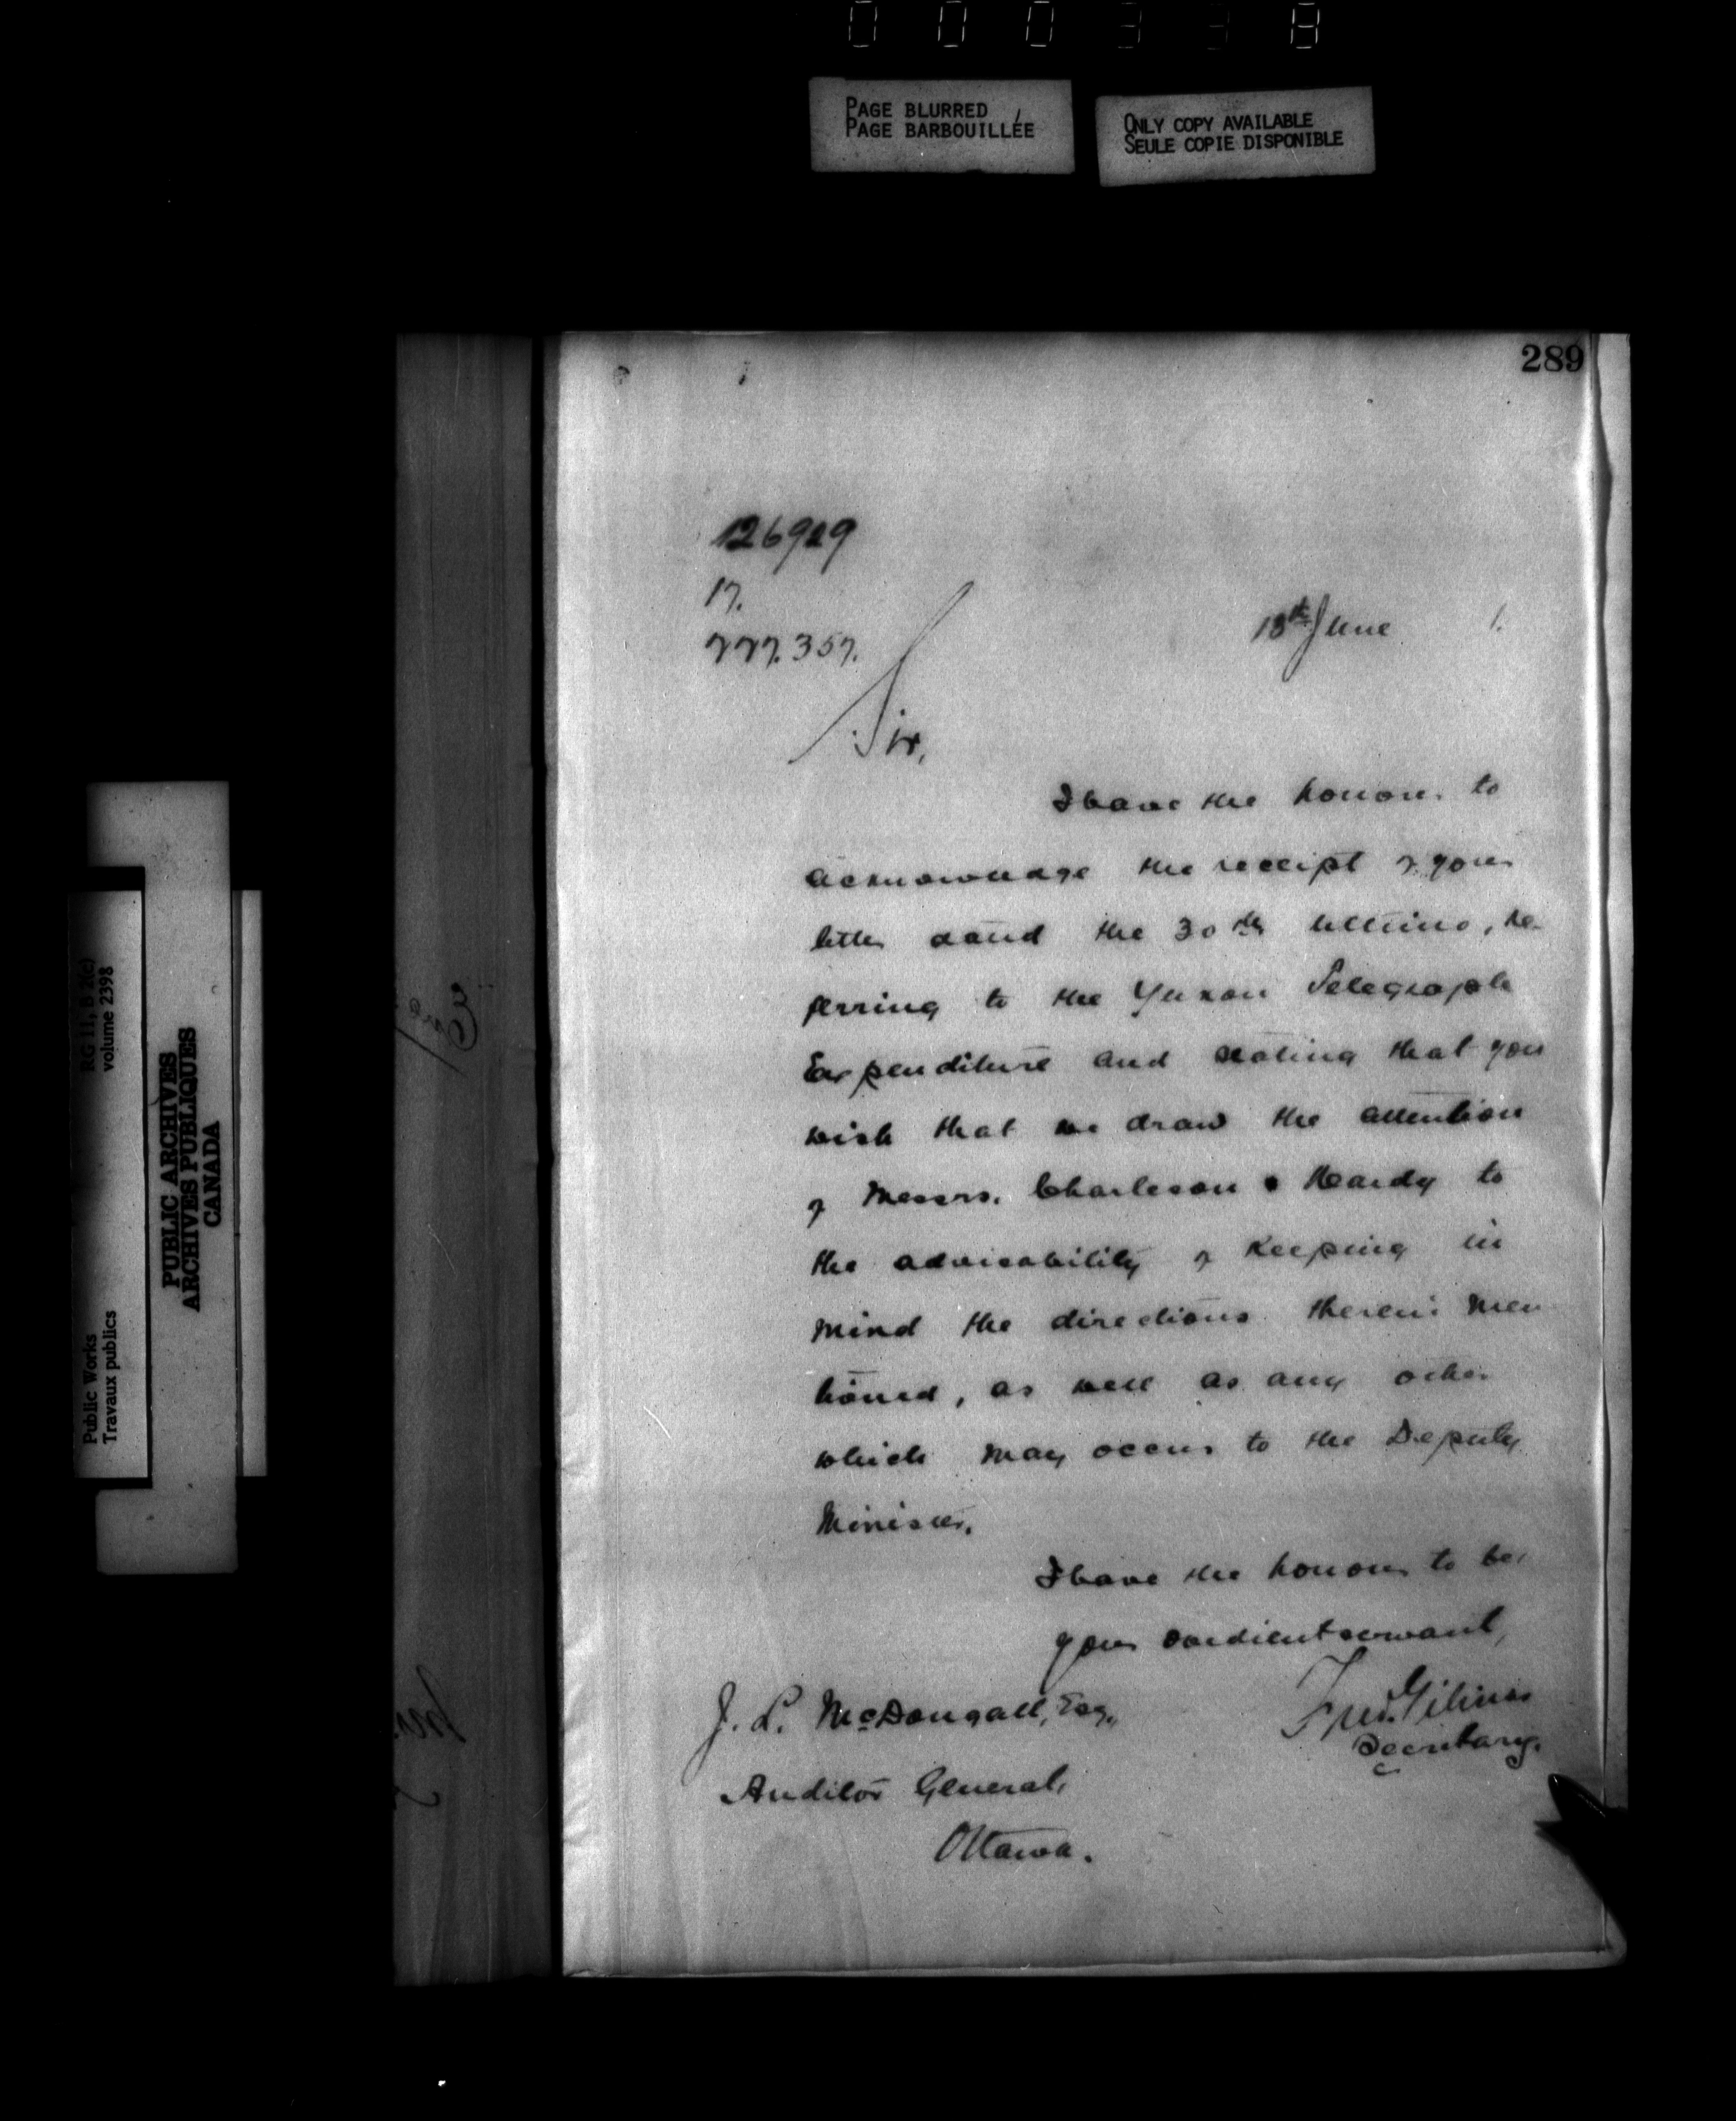 PAGE BLURRED
PAGE BARBOUILLÉE
ONLY COPY AVAILABLE
SEULE COPIE DISPONIBLE
289
126929
17.
777.357.
18th June 1.
Sir,
I have the honour to
acknowledge the receipt of your
letter dated the 30th ultimo, re-
ferring to the Yukon Telegraph
Expenditure and stating that you
wish that we draw the attention
of Messrs. Charleson & Hardy to
the advisability of keeping in
mind the directions therein men
tioned, as well as any other
which may occur to the Deputy
Minister.
I have the honour to be,
your obedient servant,
J. L. McDougall, Esq.,
Fred. Gélinas
Secretary.
Auditor General,
Ottawa.
RG 11, B 2(c)
volume 2398
PUBLIC ARCHIVES
ARCHIVES PUBLIQUES
CANADA
Public Works
Travaux publics